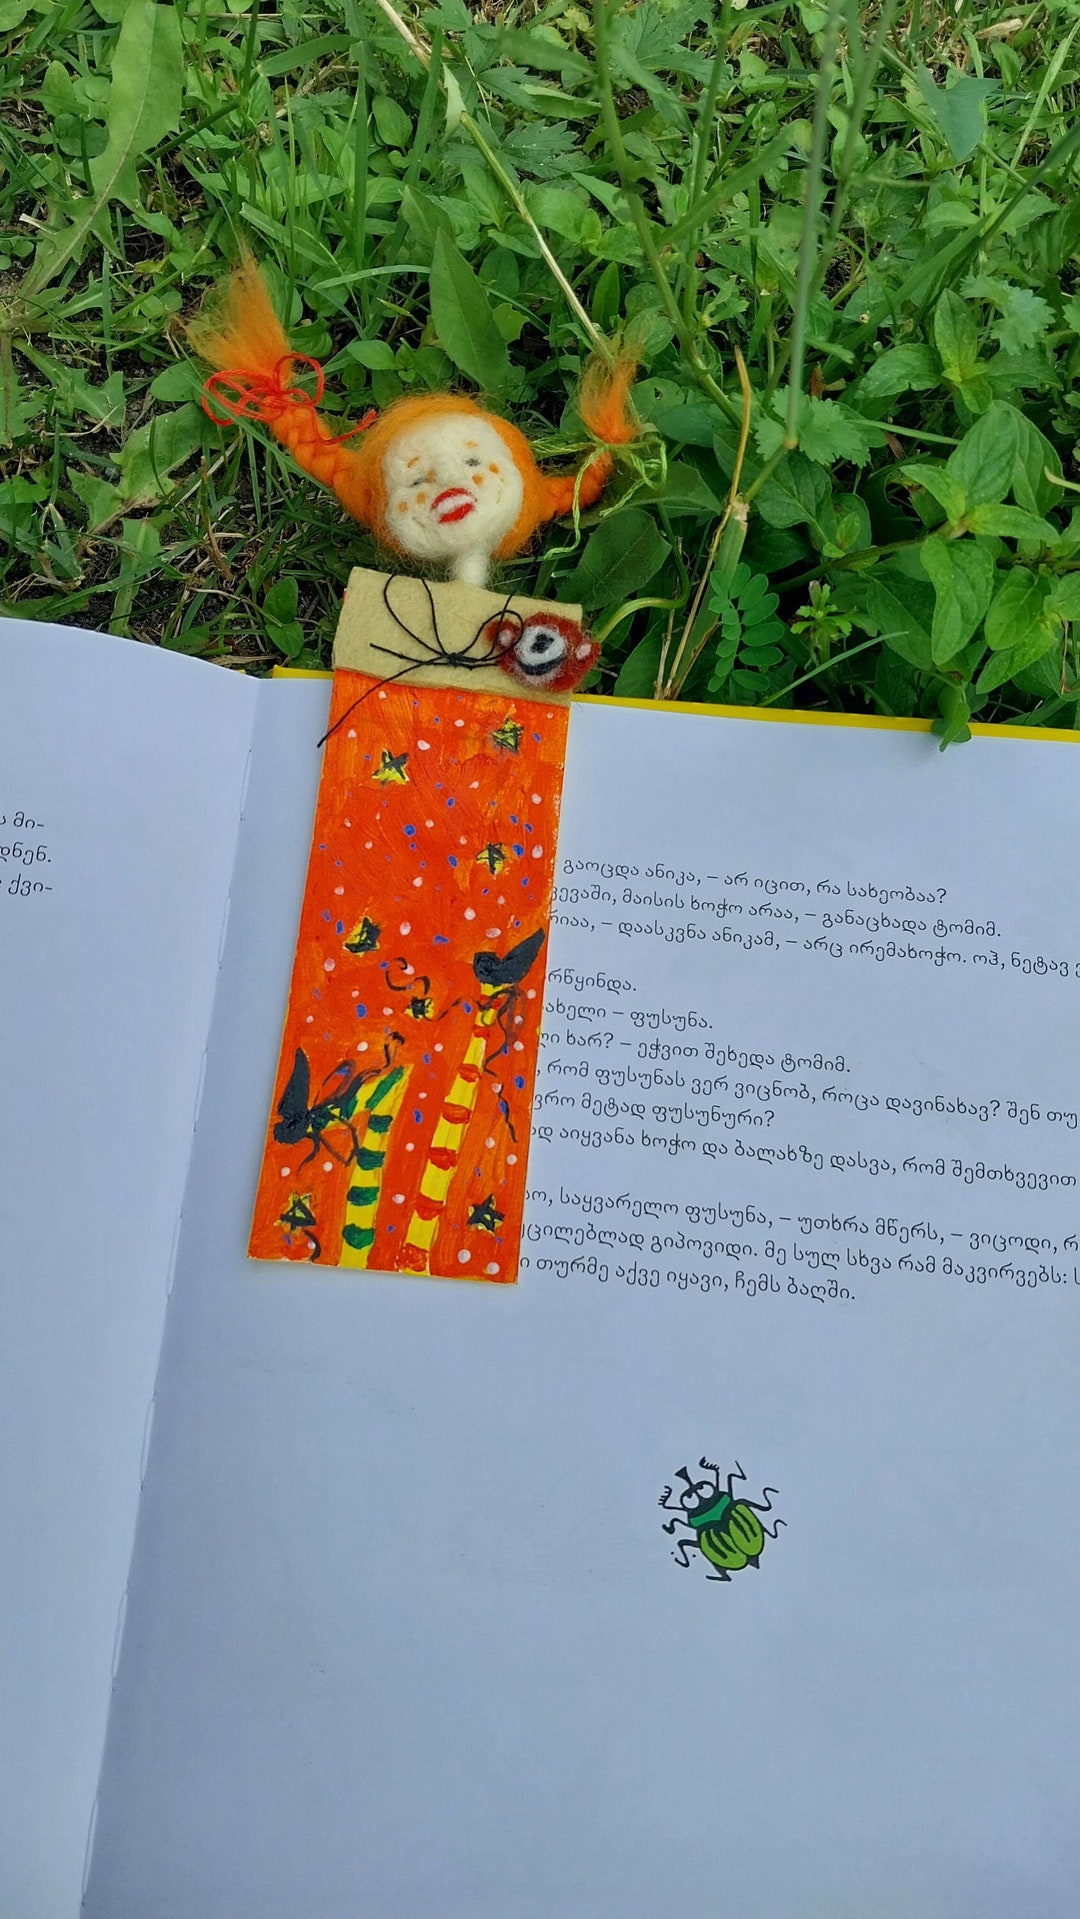 მი-
დნენ.
ქვი-
გაოცდა ანიკა, – არ იცით, რა სახეობაა?
მაისის ხოჭო არაა, – განაცხადა ტომიმ.
– დაასკვნა ანიკამ, – არც ირემახოჭო. ოჰ, ნეტავ
რწყინდა.
– ფუსუნა.
ხარ? – ეჭვით შეხედა ტომიმ.
რომ ფუსუნას ვერ ვიცნობ, როცა დავინახავ? შენ თუ
მეტად ფუსუნური?
აიყვანა ხოჭო და ბალახზე დასვა, რომ შემთხვევით
საყვარელო ფუსუნა, – უთხრა მწერს, – ვიცოდი,
გიპოვიდი. მე სულ სხვა რამ მაკვირვებს:
თურმე აქვე იყავი, ჩემს ბაღში.